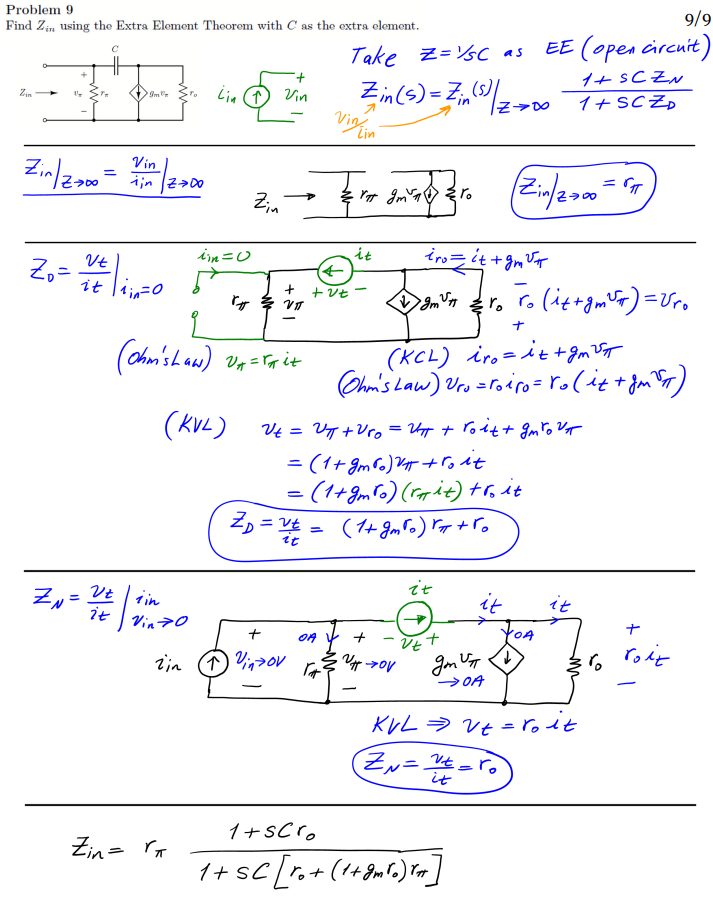 Problem 9
9/9
Find Z_in using the Extra Element Theorem with C as the extra element.
C
Z_in → + v_π − r_π g_m v_π r_o
i_in + v_in −
Take Z = 1/sC as EE (open circuit)
Z_in(s) = Z_in(s)|_{Z→∞} (1 + sC Z_N)/(1 + sC Z_D)
v_in/i_in
Z_in|_{Z→∞} = v_in/i_in |_{Z→∞}
Z_in → r_π g_m v_π r_o
Z_in|_{Z→∞} = r_π
Z_D = v_t/i_t |_{i_in=0}
i_in=0 i_t i_ro = i_t + g_m v_π
r_π + v_π − + v_t − g_m v_π r_o − r_o (i_t + g_m v_π) = v_ro +
(Ohm's Law) v_π = r_π i_t
(KCL) i_ro = i_t + g_m v_π
(Ohm's Law) v_ro = r_o i_ro = r_o (i_t + g_m v_π)
(KVL) v_t = v_π + v_ro = v_π + r_o i_t + g_m r_o v_π
= (1 + g_m r_o) v_π + r_o i_t
= (1 + g_m r_o) (r_π i_t) + r_o i_t
Z_D = v_t/i_t = (1 + g_m r_o) r_π + r_o
Z_N = v_t/i_t | i_in v_in→0
i_t i_t i_t
i_in + v_in→0V − 0A r_π + v_π→0V − − v_t + g_m v_π →0A 0A r_o + r_o i_t −
KVL ⇒ v_t = r_o i_t
Z_N = v_t/i_t = r_o
Z_in = r_π (1 + sC r_o)/(1 + sC [r_o + (1 + g_m r_o) r_π])